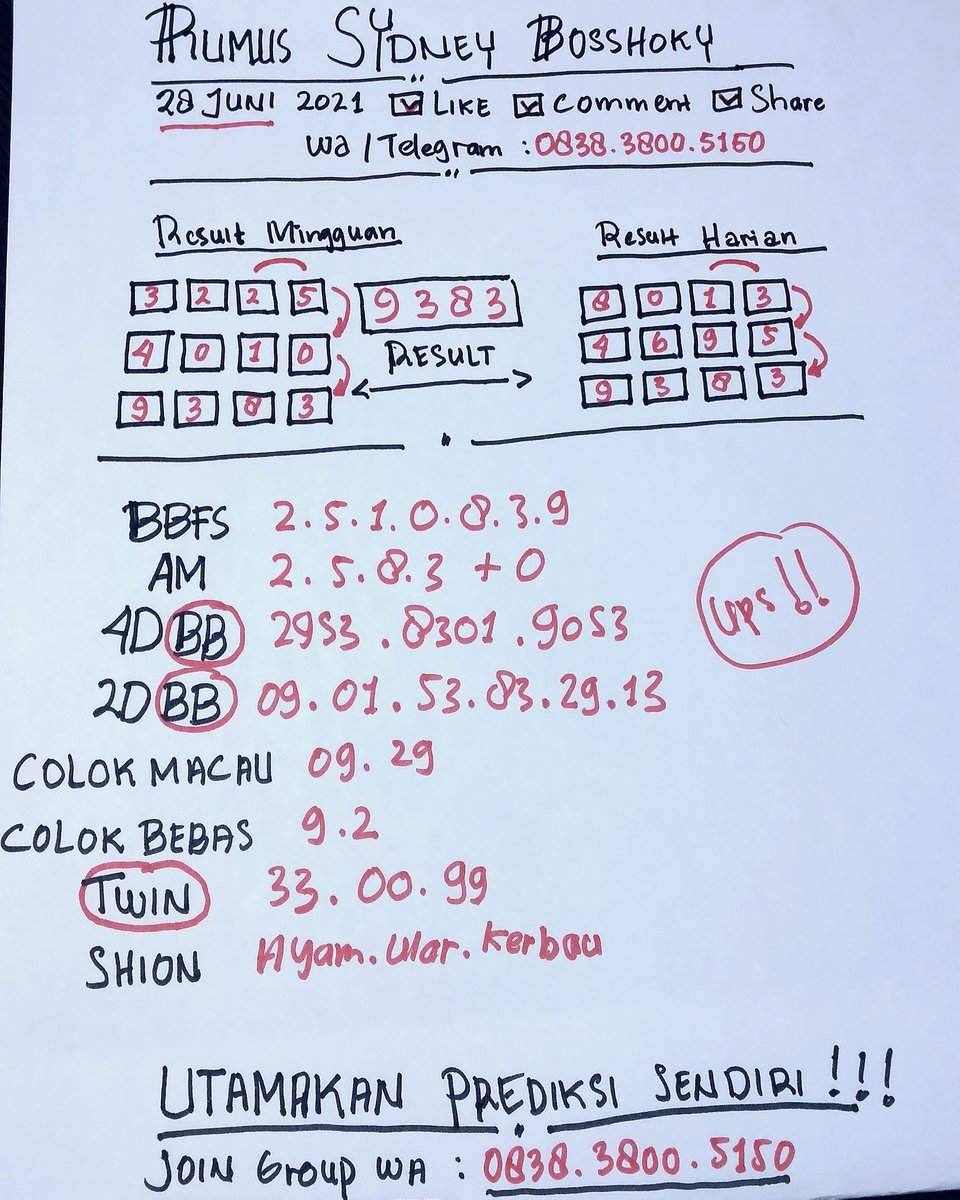 RUMUS SYDNEY BOSSHOKY
28 JUNI 2021 LIKE Comment Share
WA / Telegram : 0838.3800.5150
Result Mingguan
3 2 2 5
4 0 1 0
9 3 8 3
9383
RESULT
Result Harian
8 0 1 3
4 6 9 5
9 3 8 3
BBFS 2.5.1.0.8.3.9
AM 2.5.8.3 + 0
4D BB 2953.8301.9053
Ups!!
2D BB 09.01.53.83.29.13
COLOK MACAU 09.29
COLOK BEBAS 9.2
TWIN 33.00.99
SHION Ayam.Ular.Kerbau
UTAMAKAN PREDIKSI SENDIRI!!!
JOIN Group WA : 0838.3800.5150